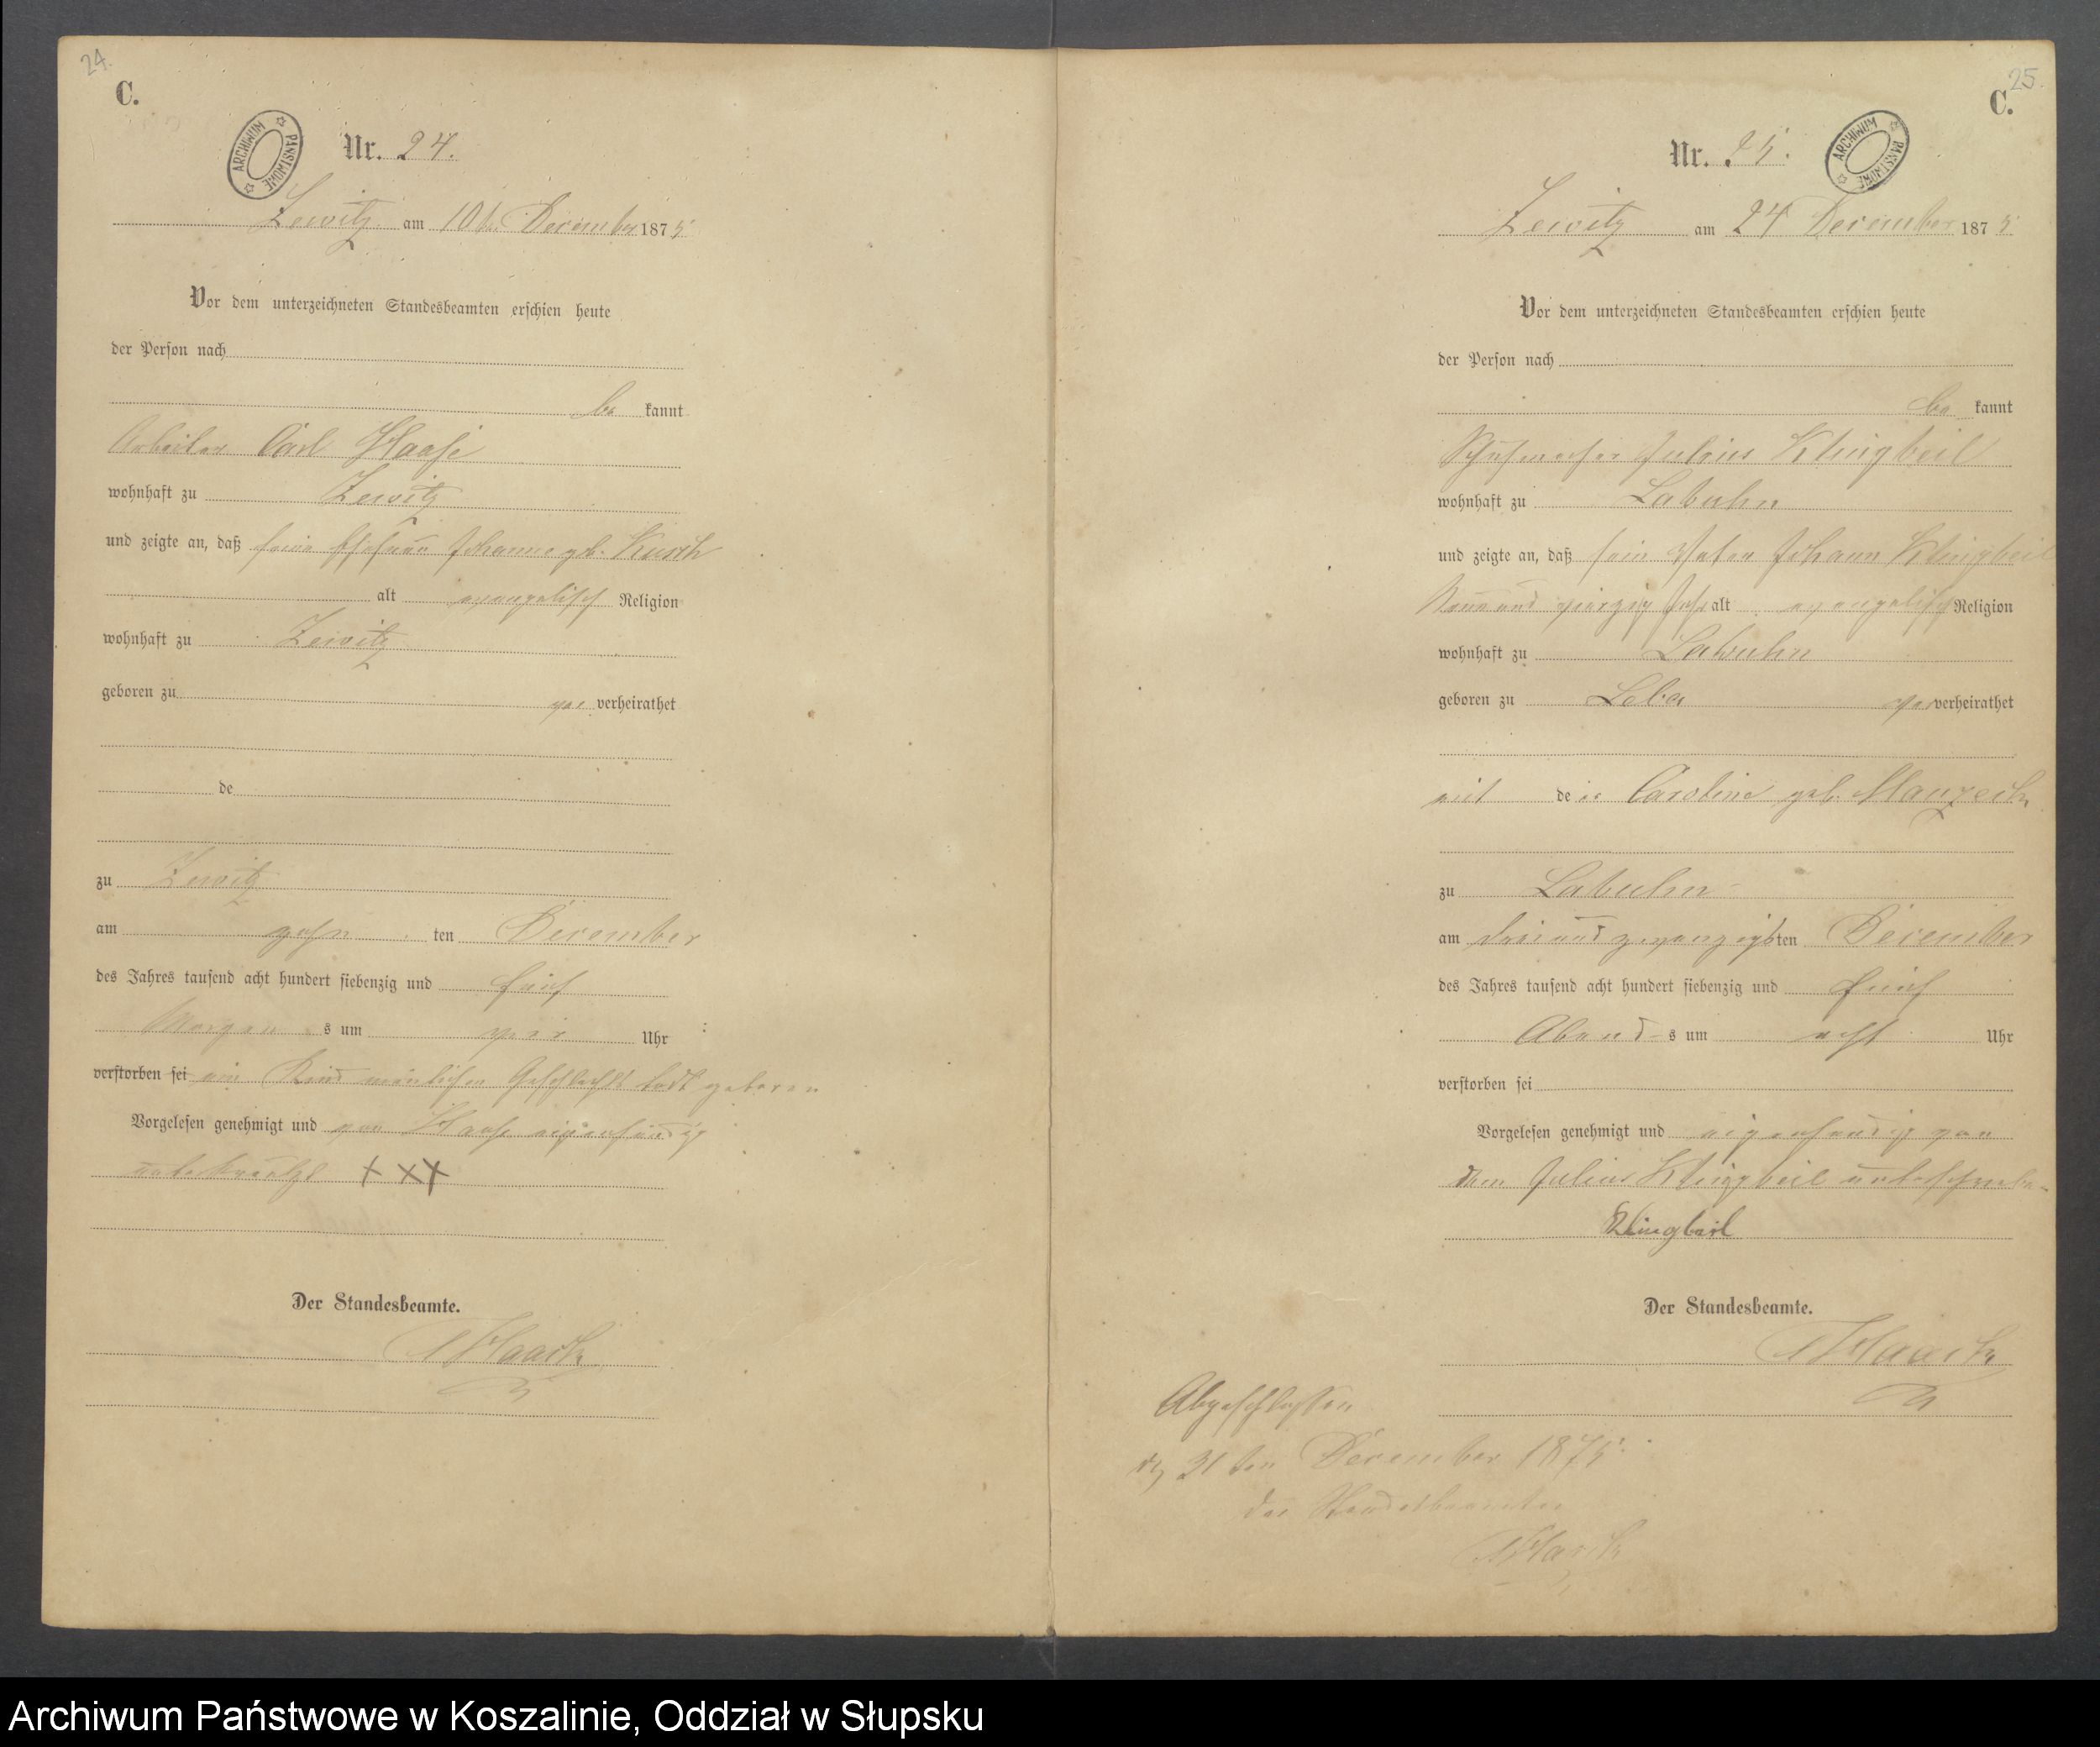 24.
C.
ARCHIWUM PAŃSTWOWE
Nr. 24.
Zewitz am 10ten December 1875
Vor dem unterzeichneten Standesbeamten erschien heute
der Person nach
be kannt
Arbeiter Carl Haase
wohnhaft zu Zewitz
und zeigte an, daß seine Ehefrau Johanne geb. Kusch
alt evangelisch Religion
wohnhaft zu Zewitz
geboren zu ver verheirathet
de
zu Zewitz
am zehn ten December
des Jahres tausend acht hundert siebenzig und fünf
Morgen s um vier Uhr
verstorben sei ein Kind mänlichen Geschlecht todt geboren
Vorgelesen genehmigt und von Haase eigenhändig
unterkreutzt + x +
Der Standesbeamte.
Haack
25.
C.
ARCHIWUM PAŃSTWOWE
Nr. 25.
Zewitz am 24 December 1875
Vor dem unterzeichneten Standesbeamten erschien heute
der Person nach
be kannt
Schuhmacher Julius Klingbeil
wohnhaft zu Labuhn
und zeigte an, daß sein Vater Johann Klingbeil
Neun und vierzig Jahr alt evangelisch Religion
wohnhaft zu Labuhn
geboren zu Leba ver verheirathet
mit de er Caroline geb.
zu Labuhn
am drei und zwanzigsten December
des Jahres tausend acht hundert siebenzig und fünf
Abend s um acht Uhr
verstorben sei
Vorgelesen genehmigt und eigenhändig von
dem Julius Klingbeil unterschrieben
Klingbeil
Der Standesbeamte.
Haack
Abgeschlossen
den 31ten December 1875.
der Standesbeamte
Haack
Archiwum Państwowe w Koszalinie, Oddział w Słupsku